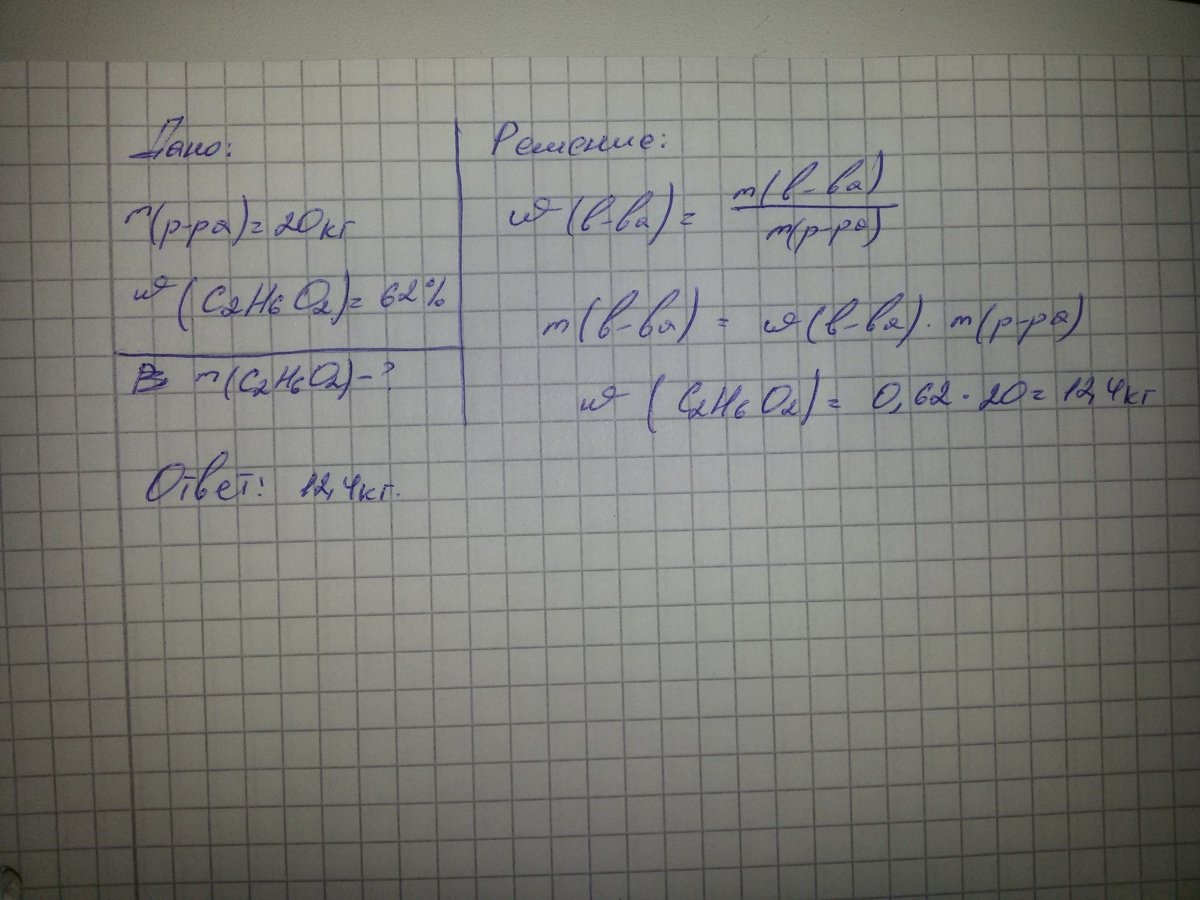 Дано:
m(р-ра)= 20кг
w(C2H6O2)= 62%
m(C2H6O2)-?
Решение:
w(в-ва)= m(в-ва)
m(р-ра)
m(в-ва) = w(в-ва)· m(р-ра)
w (C2H6O2)= 0,62·20= 12,4кг
Ответ: 12,4кг.